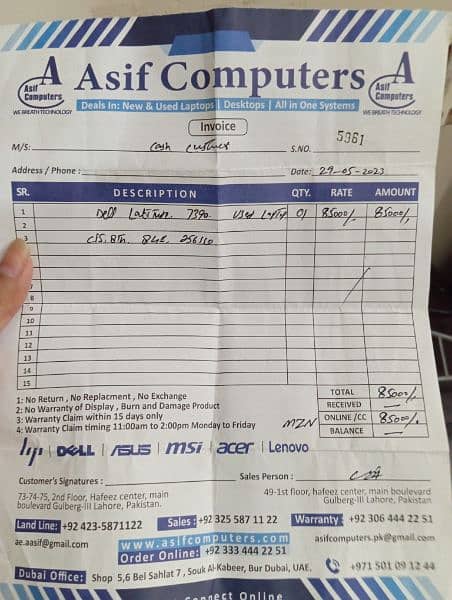 A Asif Computers A
Asif Computers
Asif Computers
WE BREATH TECHNOLOGY
WE BREATH TECHNOLOGY
Deals In: New & Used Laptops | Desktops | All in One Systems
Invoice
M/S: Cash Customer S.NO. 5961
Address / Phone : Date: 29-05-2023
SR. DESCRIPTION QTY. RATE AMOUNT
1 Dell Latitude. 7390. Used Laptop 01 85000/. 85000/.
2
3 C/5. 8th. 8GB. 256
7
8
9
10
11
12
13
14
15
1: No Return , No Replacment , No Exchange
2: No Warranty of Display , Burn and Damage Product
3: Warranty Claim within 15 days only
4: Warranty Claim timing 11:00am to 2:00pm Monday to Friday
TOTAL 85000/.
RECEIVED —
MZN ONLINE /CC 85000/.
BALANCE —
hp | DELL / ASUS | msi | acer | Lenovo
Customer's Signatures : Sales Person :
73-74-75, 2nd Floor, Hafeez center, main
boulevard Gulberg-III Lahore, Pakistan.
49-1st floor, hafeez center, main boulevard
Gulberg-III Lahore, Pakistan.
Land Line: +92 423-5871122 Sales : +92 325 587 11 22 Warranty : +92 306 444 22 51
ae.aasif@gmail.com www.asifcomputers.com asifcomputers.pk@gmail.com
Order Online: +92 333 444 22 51
Dubai Office: Shop 5,6 Bel Sahlat 7 , Souk Al-Kabeer, Bur Dubai, UAE. +971 501 09 12 44
Connect Online